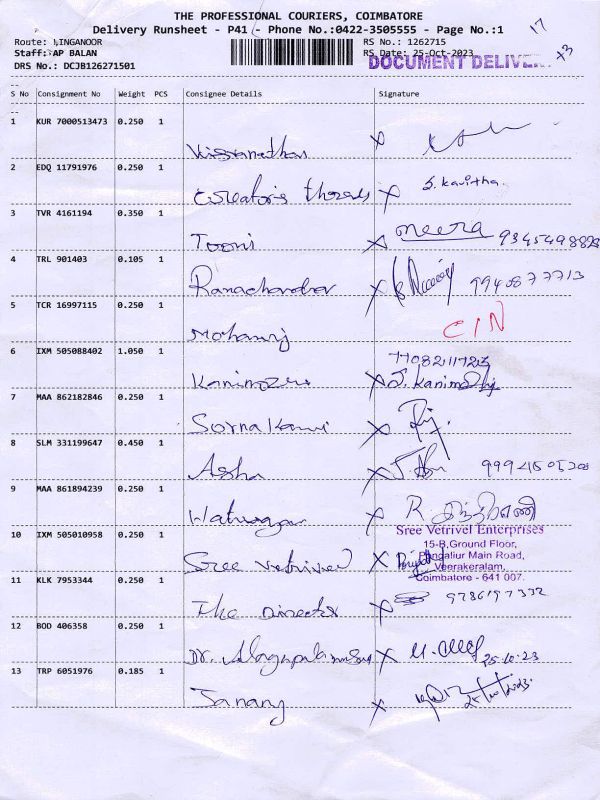 THE PROFESSIONAL COURIERS, COIMBATORE
Delivery Runsheet - P41 - Phone No.:0422-3505555 - Page No.:1
17
Route: LINGANOOR
RS No.: 1262715
Staff: AP BALAN
RS Date: 25-Oct-2023
DRS No.: DCJB126271501
DOCUMENT DELIVE
x3
S No Consignment No Weight PCS Consignee Details Signature
1 KUR 7000513473 0.250 1
Viswanathan x
2 EDQ 11791976 0.250 1
Creatoris threads x S. Kavitha.
3 TVR 4161194 0.350 1
Tooni x meera
4 TRL 901403 0.105 1
Ramachandran x 9940877713
5 TCR 16997115 0.250 1
Mohanraj CIN
6 IXM 505088402 1.050 1
Kanimozhi x J. Kanimozhi
7 MAA 862182846 0.250 1
Sorna Kami x
8 SLM 331199647 0.450 1
Asha x
9 MAA 861894239 0.250 1
x R.
10 IXM 505010958 0.250 1
Sree Vetrivel Enterprises
15-B, Ground Floor,
Pongaliur Main Road,
Veerakeralam,
Coimbatore - 641 007.
Sree Vetrivel x
11 KLK 7953344 0.250 1
The Director x 9786197332
12 BOD 406358 0.250 1
Dr. x 25.10.23
13 TRP 6051976 0.185 1
Janany x 25/10/2023.